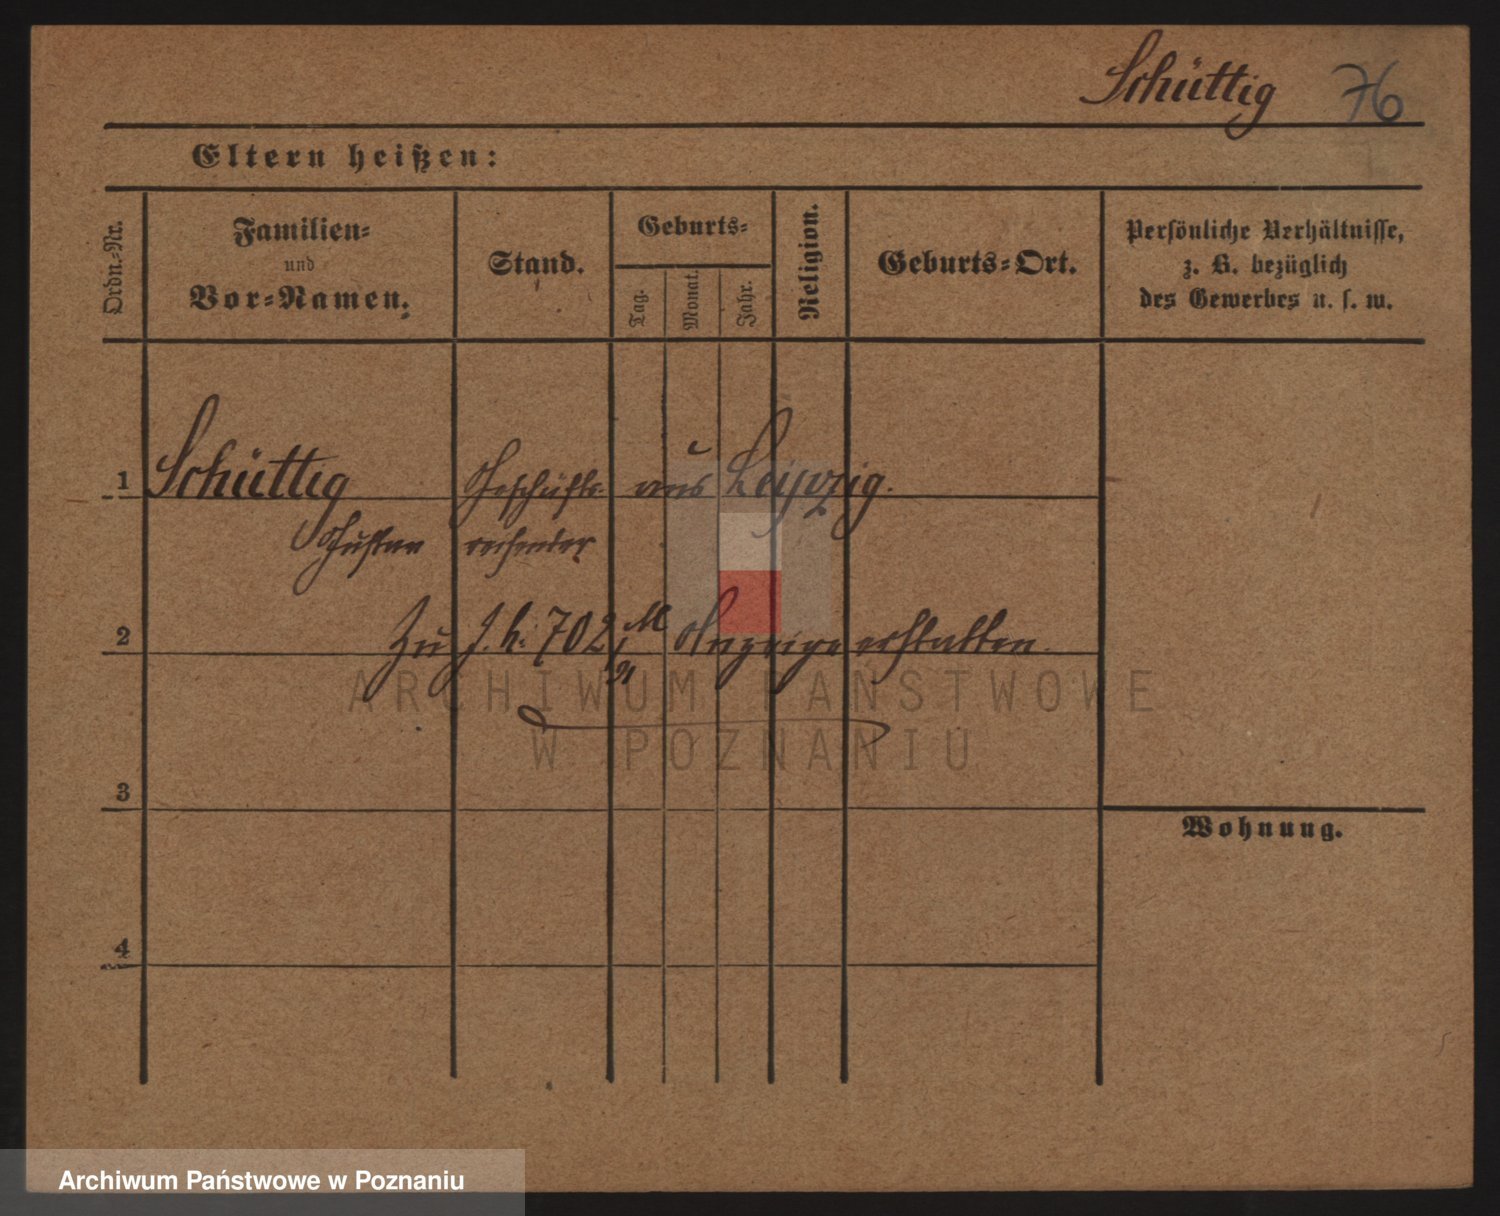 Schüttig 76
Eltern heißen:
Ordn.-Nr.
Familien-
und
Vor-Namen.
Stand.
Geburts-
Tag.
Monat.
Jahr.
Religion.
Geburts-Ort.
Persönliche Verhältnisse,
z. B. bezüglich
des Gewerbes u. s. w.
1 Schüttig Geschäfts- aus Leipzig.
Gustav reisender
2 Zu J. h. 702 Anzeige erstatten.
ARCHIWUM PAŃSTWOWE
W POZNANIU
3
Wohnung.
4
Archiwum Państwowe w Poznaniu